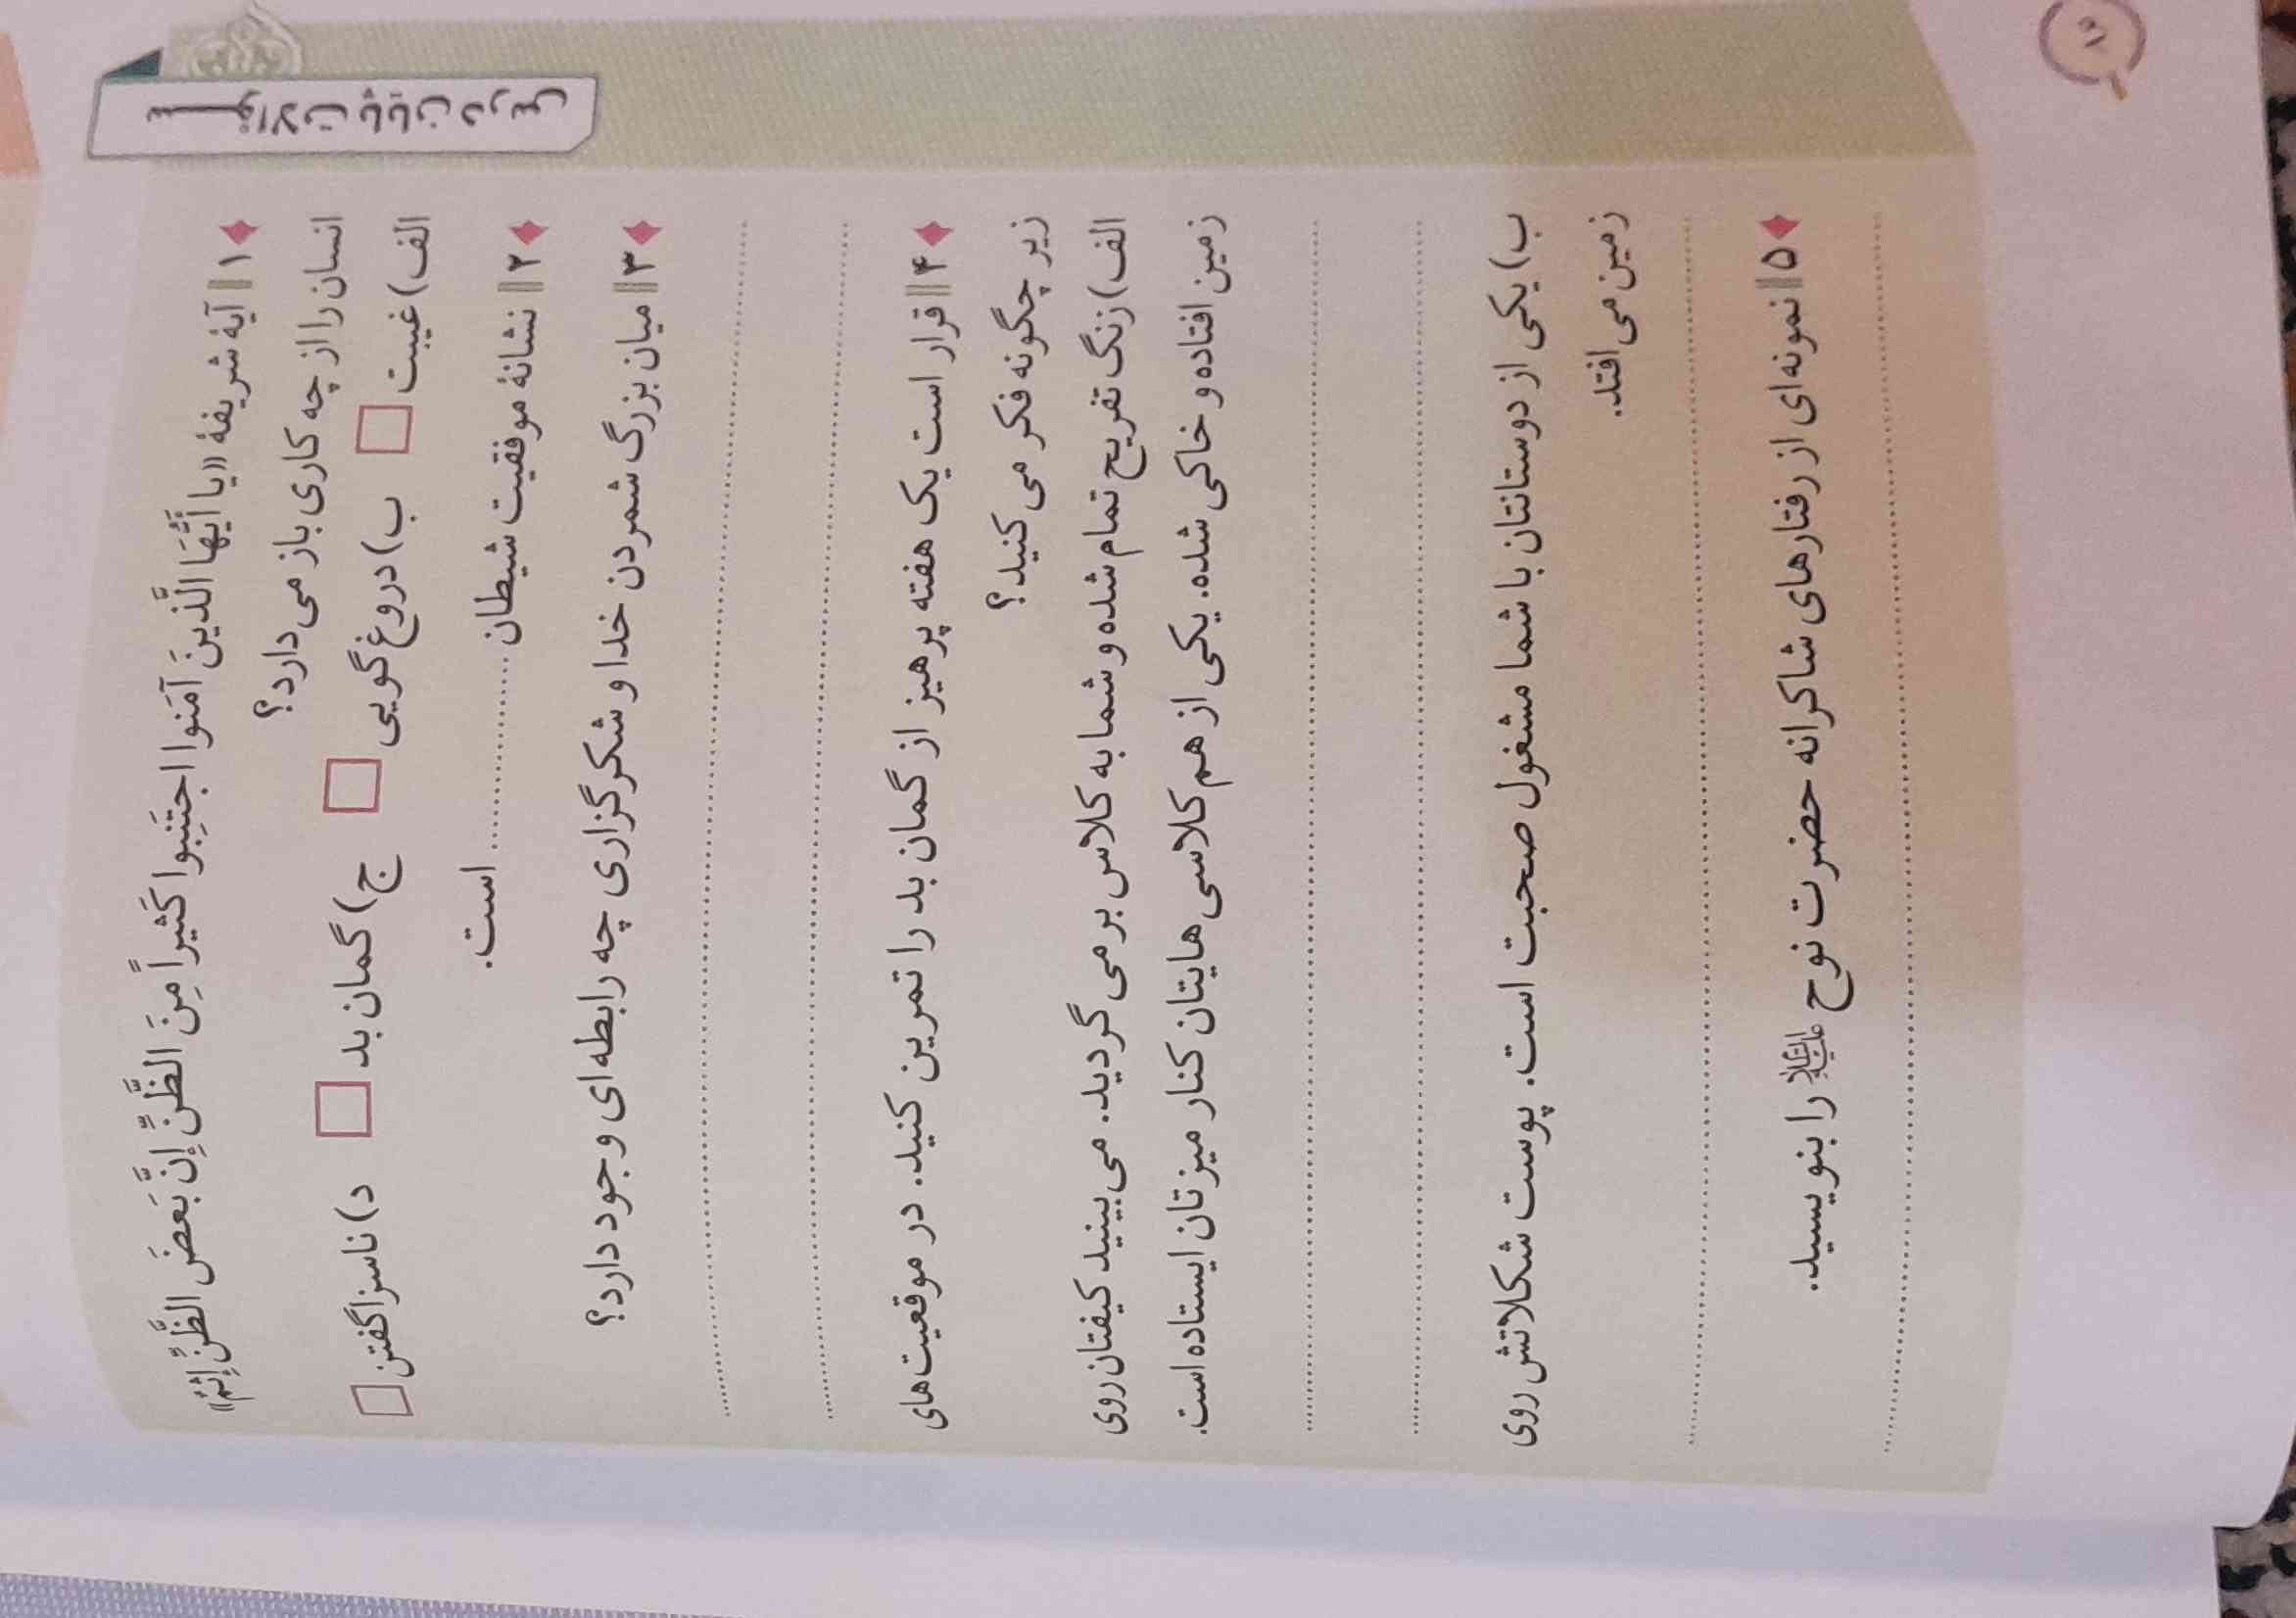 سوالات متن درس
۱ آیهٔ شریفهٔ «یا أَیُّهَا الَّذینَ آمَنوا اجتَنِبوا کَثیراً مِنَ الظَّنِّ إنَّ بَعضَ الظَّنِّ إثمٌ»
انسان را از چه کاری باز می‌دارد؟
الف) غیبت □ ب) دروغ‌گویی □ ج) گمان بد □ د) ناسزا گفتن □
۲ نشانهٔ موفقیت شیطان .................... است.
۳ میان بزرگ شمردن خدا و شکرگزاری چه رابطه‌ای وجود دارد؟
۴ قرار است یک هفته پرهیز از گمان بد را تمرین کنید. در موقعیت‌های
زیر چگونه فکر می‌کنید؟
الف) زنگ تفریح تمام شده و شما به کلاس برمی‌گردید. می‌بینید کیفتان روی
زمین افتاده و خاکی شده. یکی از هم‌کلاسی‌هایتان کنار میزتان ایستاده است.
ب) یکی از دوستانتان با شما مشغول صحبت است. پوست شکلاتش روی
زمین می‌افتد.
۵ نمونه‌ای از رفتارهای شاکرانه حضرت نوح علیه‌السلام را بنویسید.